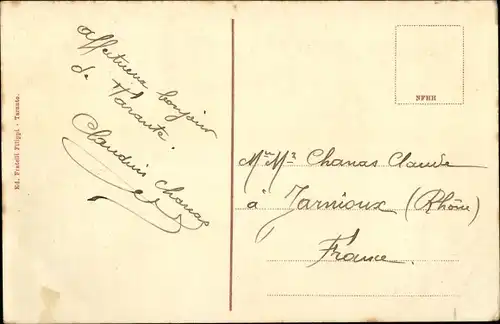 Affectueux bonjour
de Tarante.
Claudius Chanas
Ed. Fratelli Filippi - Taranto.
NFHR
Mr Me Chanas Claude
à Jarnioux (Rhône)
France.